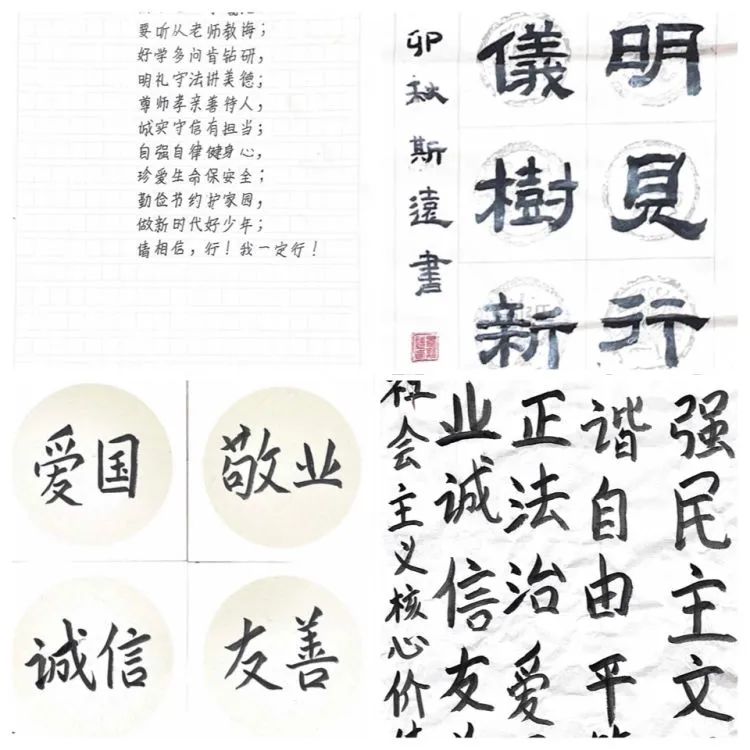 要听从老师教诲；
好学多问肯钻研，
明礼守法讲美德；
尊师孝亲善待人，
诚实守信有担当；
自强自律健身心，
珍爱生命保安全；
勤俭节约护家园，
做新时代好少年；
请相信，行！我一定行！
明見行
儀樹新
卯秋斯遠書
爱国
敬业
诚信
友善
强民主文
谐自由平
正法治爱
业诚信友
会主义核心价